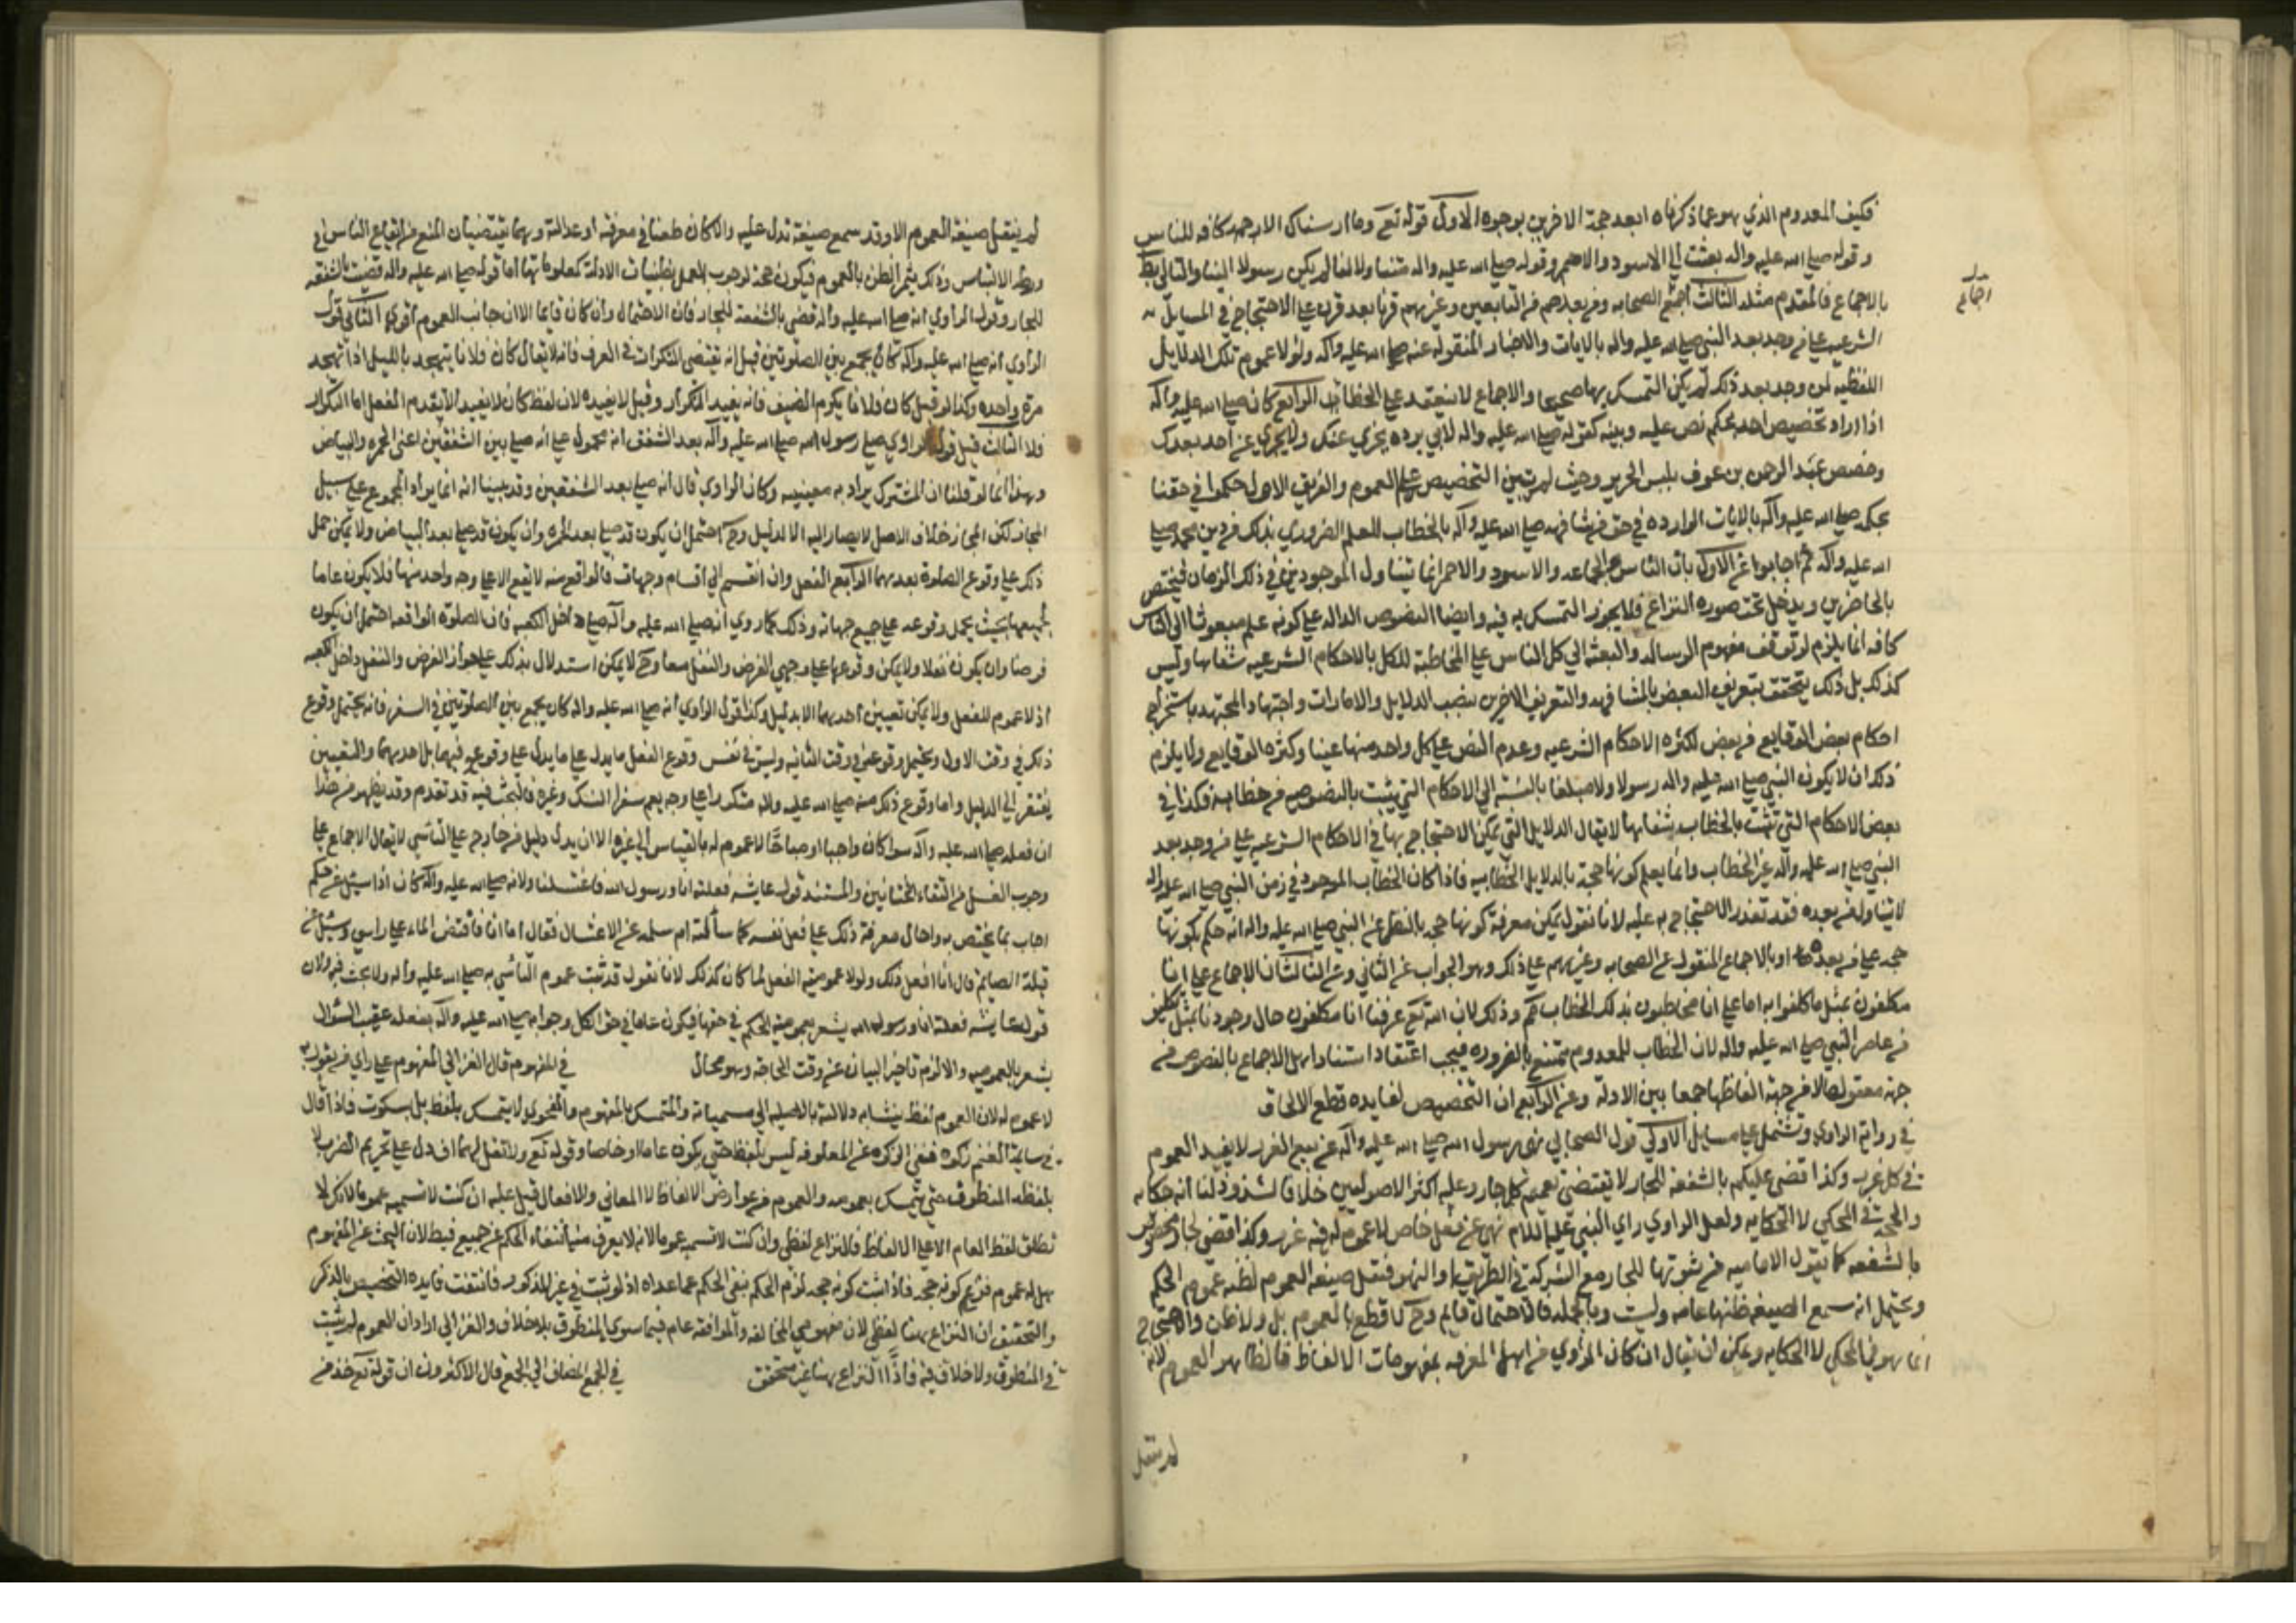 فكيف المعدوم الذي هو عما ذكرناه ابعد حجة الاخرين بوجوه الاول قوله تع وما ارسلناك الا رحمه كافه للناس
وقوله صلى الله عليه واله بعثت الى الاسود والاحمر وقوله صلى الله عليه واله متنا ولا لنا لم يكن رسولا الينا والتالي بط
بالاجماع فالمقدم مثله الثالث اجمع الصحابه ومن بعدهم من التابعين وغيرهم قرنا بعد قرن على الاحتجاج في المسايل
الشرعيه على من وجد بعد النبي صلى الله عليه واله بالايات والاخبار المنقوله عنه صلى الله عليه واله ولولا عموم تلك الدلايل
اللفظيه لمن وجد بعد ذلك لم يكن التمسك بها صحيحا والاجماع لا ينعقد على الخطا الرابع كان صلى الله عليه واله
اذا اراد تخصيص احد بحكم نص عليه وبينه كقوله صلى الله عليه واله لابي برده يجزي عنك ولا يجزي عن احد بعدك
وخصص عبد الرحمن بن عوف بلبس الحرير وحيث لم يتبين التخصيص علم العموم والفريق الاول حكموا في حقنا
بحكمه صلى الله عليه واله بالايات الوارده في حق من شافهه صلى الله عليه واله بالخطاب للعلم الضروري بذلك من دين محمد صلى
الله عليه واله ثم اجابوا عن الاول بان الناس والجماعه والاسود والاحمر انما يتناول الموجودين في ذلك الزمان فيختص
بالحاضرين ويدخل تحت صوره النزاع فلا يجوز التمسك به فيه وايضا النصوص الداله على كونه علم مبعوثا الى الناس
كافه انما يلزم لو توقف مفهوم الرساله والبعثه الى كل الناس على المخاطبة للكل بالاحكام الشرعيه شفاها وليس
كذلك بل ذلك يتحقق بتعريف البعض بالمشافهه والتعريف الاخرين بنصب الدلايل والامارات واجتهاد المجتهد باستخراج
احكام بعض الوقايع من بعض لكثره الاحكام الشرعيه وعدم النص على كل واحد منها عينا وكثره الوقايع ولا يلزم
ذلك ان لا يكون النبي صلى الله عليه واله رسولا ولا مبلغا بالنسبة الى الاحكام التي يثبت بالنصوص من خطابه فكذا في
بعض الاحكام التي ثبتت بالخطاب شفاها لا يقال الدلايل التي يمكن الاحتجاج بها في الاحكام الشرعيه على من وجد بعد
النبي صلى الله عليه واله غير الخطاب وانما يعلم كونها حجة بالدلايل الخطابيه فاذا كان الخطاب الموجود في زمن النبي صلى الله عليه واله
لا يتناول من بعده فقد تعذر الاحتجاج به عليه لانا نقول يمكن معرفة كونها حجه بالنقل عن النبي صلى الله عليه واله انه حكم بكونها
حجه على من بعده او بالاجماع المنقول عن الصحابه وغيرهم على ذلك وهو الجواب عن الثاني وعن الثالث ان الاجماع على انا
مكلفون بمثل ما كلفوا به اما على انا مخاطبون بذلك الخطاب فلا وذلك لان الله تع عرفنا انا مكلفون حال وجودنا بمثل تكليف
من عاصر النبي صلى الله عليه واله لان الخطاب للمعدوم ممتنع بالضروره فيجب اعتقاد استناد اهل الاجماع بالنصوص من
جهة معقولها لا من جهة الفاظها جمعا بين الادلة وعن الرابع ان التخصيص لفايده قطع الالحاق
في رواية الراوي وتشتمل على مسايل الاولى قول الصحابي نهى رسول الله صلى الله عليه واله عن بيع الغرر لا يفيد العموم
في كل غرر وكذا قضى عليكم بالشفعه للجار لا يقتضي تعميم كل جار وعليه اكثر الاصوليين خلافا لشذوذ لنا انه حكايه
والحجة في المحكي لا الحكايه ولعل الراوي راى النبي عليه السلام نهى عن فعل خاص لا عموم له فيه غرر وكذا قضى لجار مخصوص
بالشفعه كما يقول الاماميه من ثبوتها للجار مع الشركة في الطريق او النهر فنقل صيغه العموم لظنه عموم الحكم
ويحتمل انه سمع الصيغه فظنها عامه وليست وبالجمله فالاحتمال قايم وح لا قطع بالعموم بل ولا ظن والاحتجاج
انما هو في المحكي لا الحكايه ويمكن ان يقال ان كان الراوي من اهل المعرفه بمفهومات الالفاظ فالظاهر العموم لانه
لم ينقل
لم ينقل صيغة العموم الا وقد سمع صيغة تدل عليه والا كان طعنا في معرفته او عدالته وهما يقتضيان المنع من ايقاع الناس في
ورطة الالتباس وذلك يثمر الظن بالعموم فيكون حجة لوجوب العمل بظنيات الادلة كمعلوماتها اما قوله صلى الله عليه واله قضيت بالشفعه
للجار وقول الراوي انه صلى الله عليه واله قضى بالشفعة للجار فان الاحتمال وان كان قايما الا ان جانب العموم اقوى الثاني قول
الراوي انه صلى الله عليه واله كان يجمع بين الصلوتين قيل انه يقتضي التكرار في العرف فانه لا يقال كان فلان يتهجد بالليل اذا تهجد
مرة واحده وكذا لو قيل كان فلان يكرم الضيف فانه يفيد التكرار وقيل لا يفيده لان لفظ كان لا يفيد الا تقدم الفعل اما التكرار
فلا الثالث قيل قول الراوي صلى رسول الله صلى الله عليه واله بعد الشفق انه محمول على انه صلى بين الشفقين اعني الحمره والبياض
وهذا انما لو قلنا ان المشترك يراد به معنييه وكان الراوي قال انه صلى بعد الشفقين وقد بينا انه انما يراد المجموع على سبيل
المجاز لكن المجاز خلاف الاصل لا يصار اليه الا لدليل وح احتمل ان يكون قد صلى بعد الحمره وان يكون قد صلى بعد البياض ولا يمكن حمل
ذلك على وقوع الصلوة بعدهما الرابع الفعل وان انقسم الى اقسام وجهات فالواقع منه لا يقع الا على وجه واحد منها فلا يكون عاما
لجميعها بحيث يحمل وقوعه على جميع جهاته وذلك كما روي انه صلى الله عليه واله صلى داخل الكعبه فان الصلوة الواقعه احتمل ان يكون
فرضا وان يكون نفلا ولا يمكن وقوعها على وجهي الفرض والنفل معا وح لا يمكن استدلال بذلك على جواز الفرض والنفل داخل الكعبه
اذ لا عموم للفعل ولا يمكن تعيين احدهما الا بدليل وكذا قول الراوي انه صلى الله عليه واله كان يجمع بين الصلوتين في السفر فانه يحتمل وقوع
ذلك في وقت الاول ويحتمل وقوعه في وقت الثانيه وليس في نفس وقوع الفعل ما يدل على ما يدل على وقوعه فيهما بل احدهما والتعيين
يفتقر الى الدليل واما وقوع ذلك منه صلى الله عليه واله متكررا على وجه يعم سفر النسك وغيره فالبحث فيه قد تقدم وقد يظهر من هذا
ان فعله صلى الله عليه واله سوا كان واجبا او مباحا لا عموم له بالقياس الى غيره الا ان يدل دليل من خارج على التاسي لا يقال الاجماع على
وجوب الغسل من التقاء الختانين والمستند قول عايشه فعلته انا ورسول الله فاغتسلنا ولانه صلى الله عليه واله كان اذا سئل عن حكم
اجاب بما يختص به واحال معرفة ذلك على فعل نفسه كما سالته ام سلمه عن الاغتسال فقال اما انا فافيض الماء على راسي وسئل عن
قبلة الصايم قال انا افعل ذلك ولولا عموميه الفعل لما كان كذلك لانا نقول قد ثبت عموم التاسي به صلى الله عليه واله ولا بحث فيه ولان
قول عايشه فعلته انا ورسول الله يشعر بعموميه الحكم في حقها فيكون عاما في حق الكل وجوابه صلى الله عليه واله بفعله عقيب السؤال
يشعر بالعموميه والا لزم تاخير البيان عن وقت الحاجه وهو محال في المفهوم قال الغزالي المفهوم على راي من يقول به
لا عموم له لان العموم لفظ يتشابه دلالته بالاضافه الى مسمياته والمتمسك بالمفهوم والفحوى لا يتمسك بلفظ بل بسكوت فاذا قال
في سايمة الغنم زكوه فنفى الزكوه عن المعلوفه ليس بلفظ حتى يكون عاما او خاصا وقوله تع ولا تقل لهما اف دل على تحريم الضرب لا
بلفظه المنطوق حتى يتمسك بعمومه والعموم من عوارض الالفاظ لا المعاني والافعال قيل عليه ان كنت لا تسميه عموما لانك لا
تطلق لفظ العام الا على الالفاظ فالنزاع لفظي وان كنت لا تسميه عموما لانه لا يعرف منه انتفاء الحكم عن جميع فبط لان البحث عن المفهوم
هل له عموم فرع كونه حجه فاذا ثبت كونه حجه لزم الحكم بنفي الحكم عما عداه اذ لو ثبت في غير المذكور فانتفت فايده التخصيص بالذكر
والتحقيق ان النزاع هنا لفظي لان مفهومي المخالفه والموافقه عام فيما سوى المنطوق بلا خلاف والغزالي اراد ان العموم لم يثبت
في المنطوق ولا خلاف فيه فاذا النزاع هنا غير متحقق في الجمع المضاف الى الجمع قال الاكثرون ان قوله تع خذ من